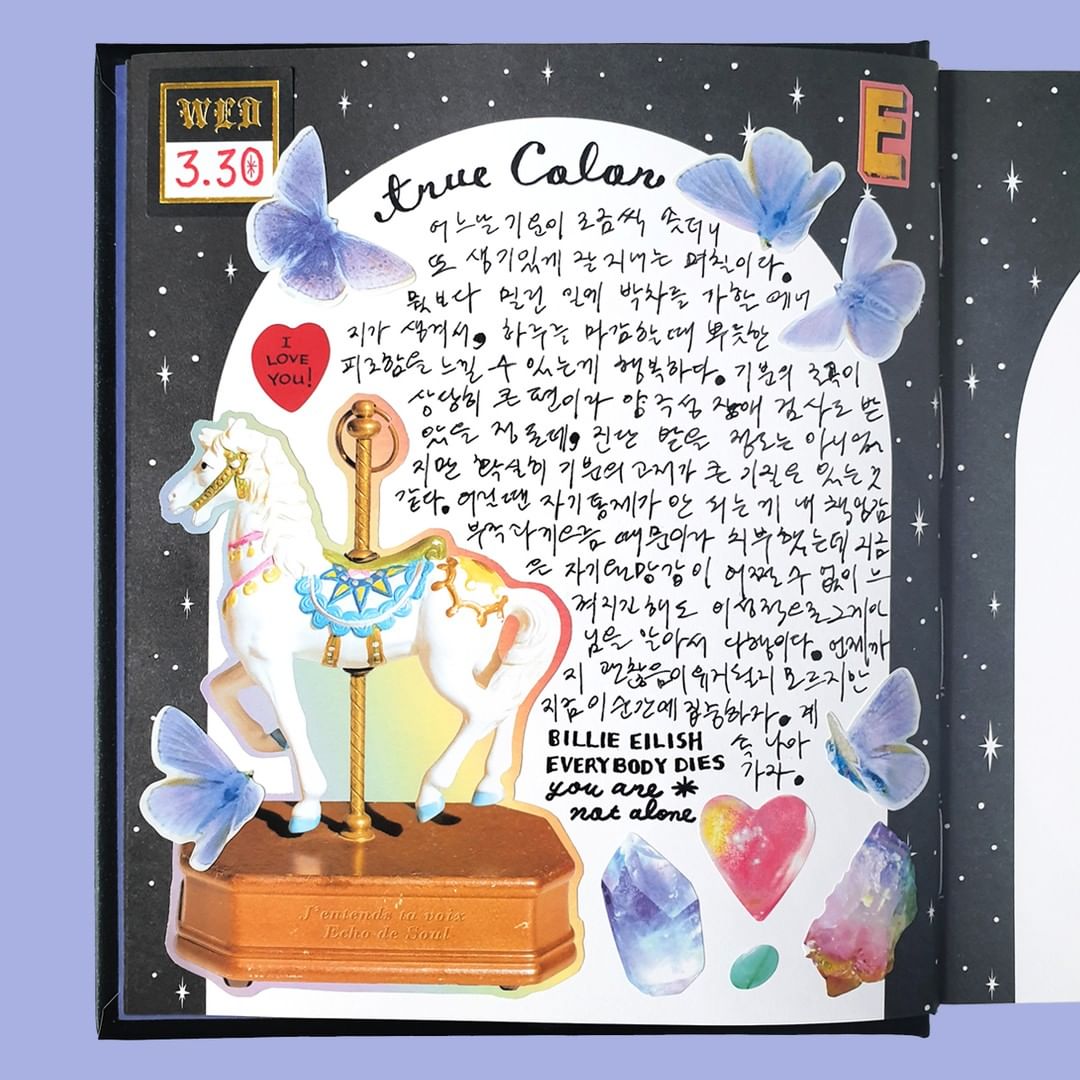 WED
3.30
E
true Color
어느날 기운이 조금씩 솟더니
또 생기있게 잘 지내는 며칠이다.
뭣보다 밀린 일에 박차를 가할 에너
지가 생겨서, 하루를 마감할 때 뿌듯한
피로함을 느낄 수 있는게 행복하다. 기분의 굴곡이
상당히 큰 편이라 양극성 장애 검사도 받
았을 정도데, 진단 받을 정도는 아니었
지만 확실히 기분의 고저가 큰 기질은 있는 것
같다. 어릴땐 자기통제가 안 되는게 내 책임감
부족과 게으름 때문이라 치부했는데 지금
은 자기원망감이 어쩔 수 없이 느
껴지긴 해도 이성적으로 그게 아
님을 알아서 다행이다. 언제까
지 괜찮음이 유지될지 모르지만
지금 이 순간에 집중하자. 계
속 나아
가자.
I
LOVE
YOU!
BILLIE EILISH
EVERYBODY DIES
you are *
not alone
J'entends ta voix
Echo de Soul